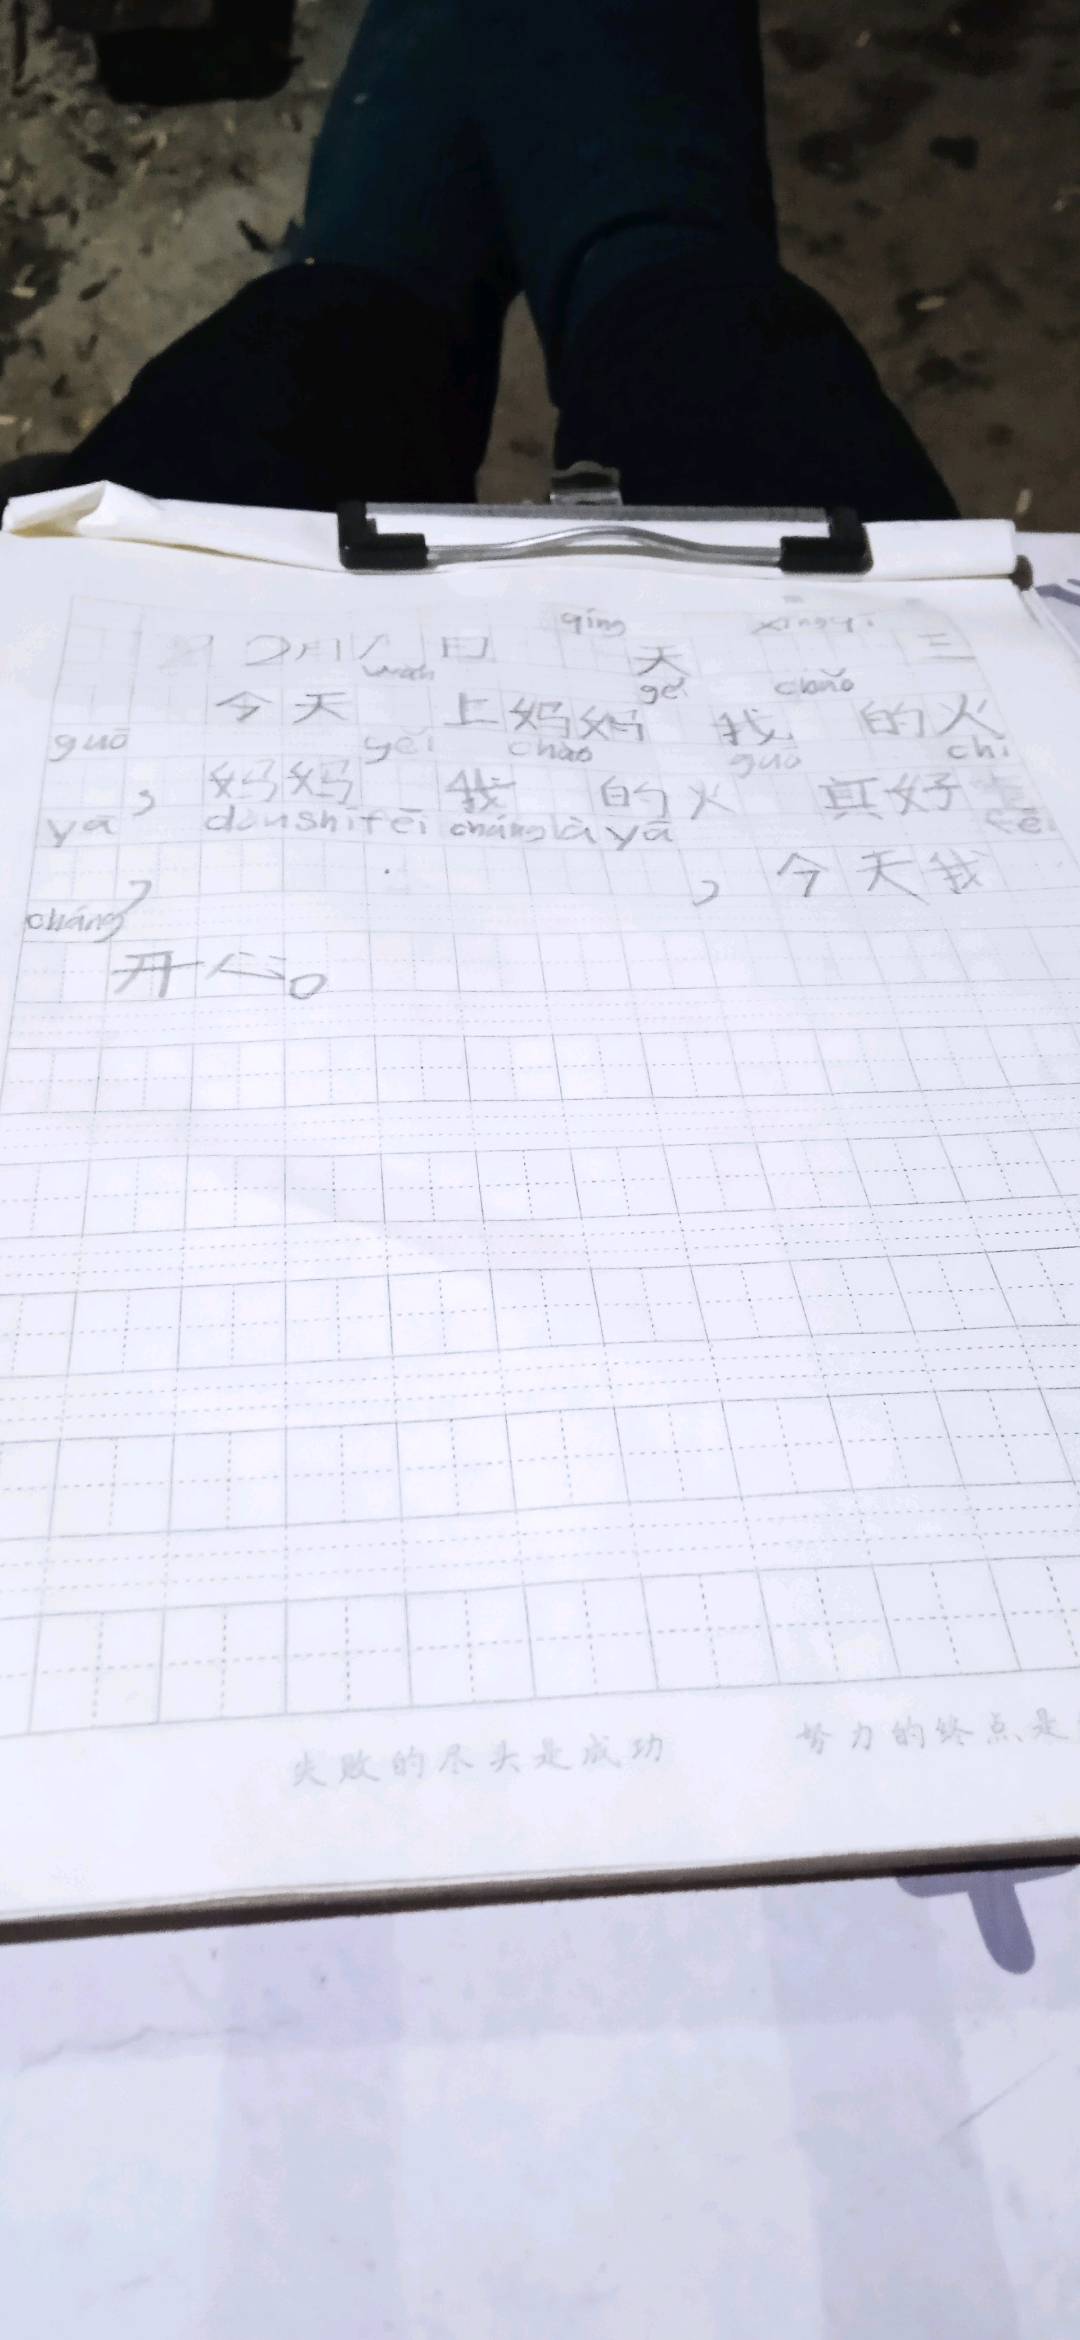 2月八日 qíng 天 xīngqī 三
今天 wǎn 上妈妈 gěi 我 chǎo 的火
guō , 妈妈 gěi 我 chǎo 的火 guō 真好 chī
yā , dànshì fēi cháng là yā , 今天我 fēi
cháng 开心。
失败的尽头是成功 努力的终点是